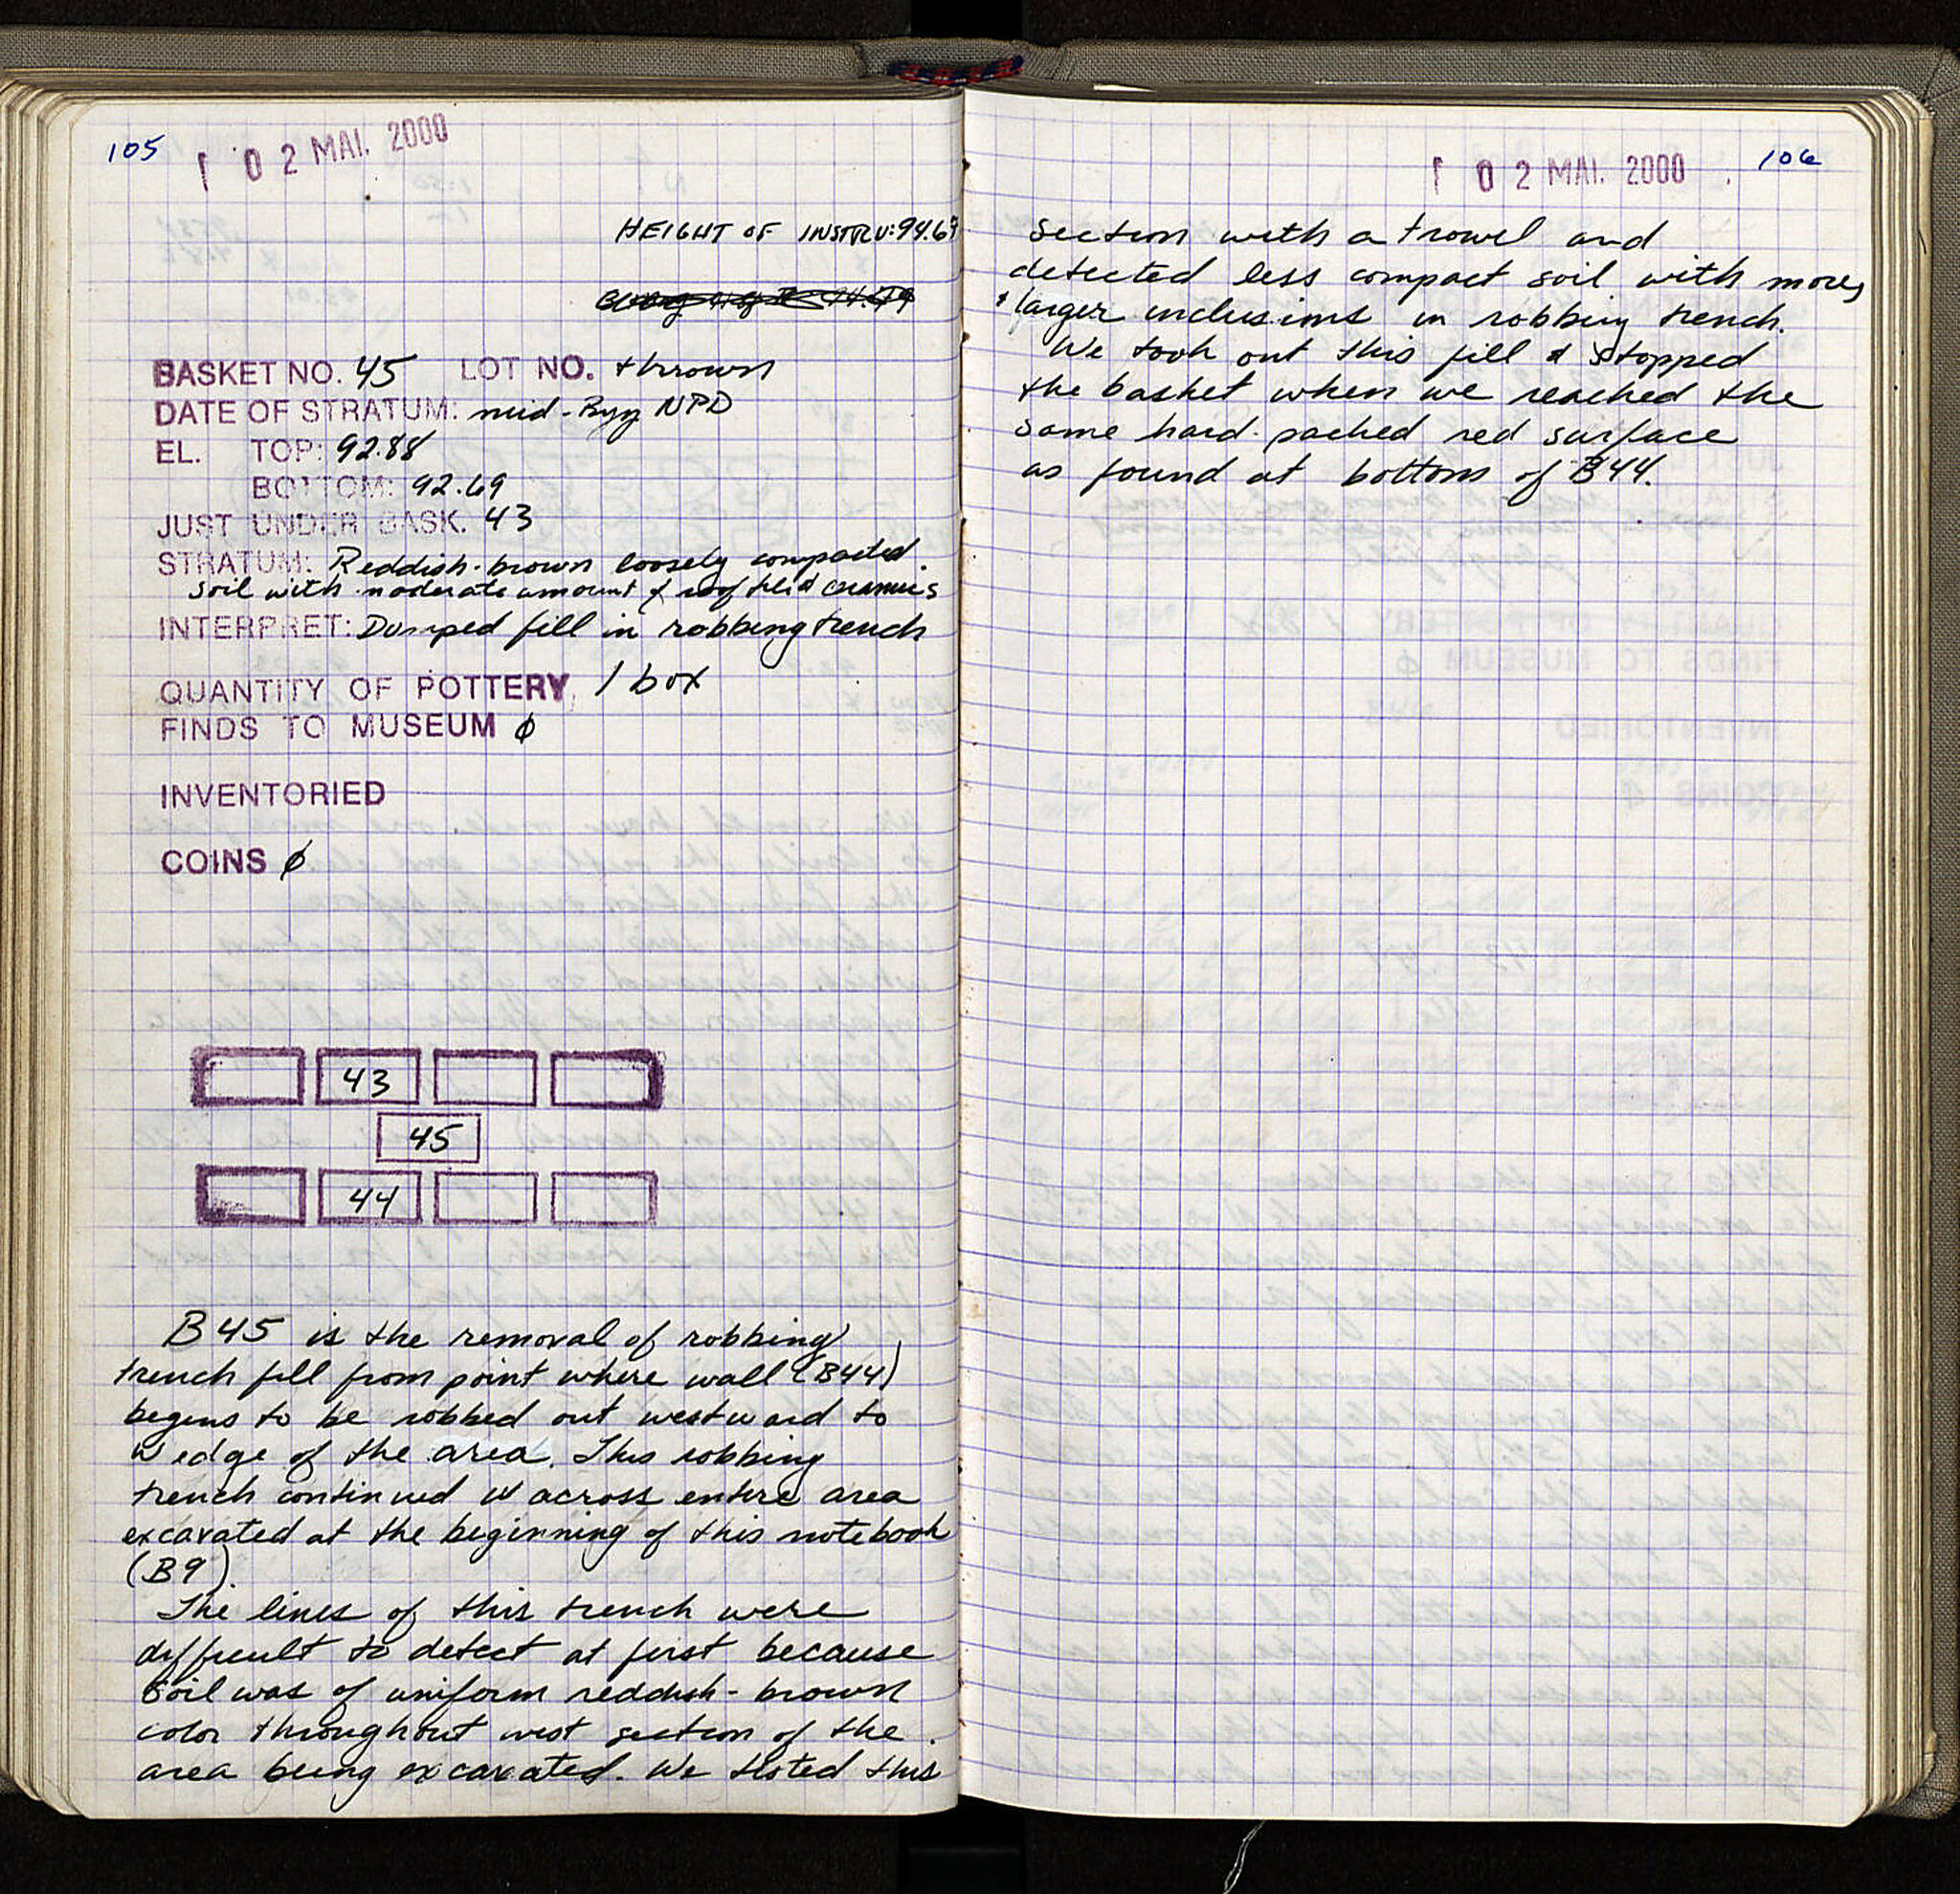 105
1 0 2 MAI. 2000
HEIGHT OF INSTRU: 94.69
BASKET NO. 45 LOT NO. thrown
DATE OF STRATUM: mid-Byz NPD
EL. TOP: 92.88
BOTTOM: 92.69
JUST UNDER BASK. 43
STRATUM: Reddish-brown loosely compacted
soil with moderate amount of roof tile & ceramics
INTERPRET: Dumped fill in robbing trench
QUANTITY OF POTTERY 1 box
FINDS TO MUSEUM ϕ
INVENTORIED
COINS ϕ
43
45
44
B45 is the removal of robbing
trench fill from point where wall (B44)
begins to be robbed out westward to
W edge of the area. This robbing
trench continued W across entire area
excavated at the beginning of this notebook
(B9).
The lines of this trench were
difficult to detect at first because
soil was of uniform reddish-brown
color throughout west section of the
area being excavated. We tested this
1 0 2 MAI. 2000
106
section with a trowel and
detected less compact soil with more,
& larger inclusions in robbing trench.
We took out this fill & stopped
the basket when we reached the
same hard-packed red surface
as found at bottom of B44.